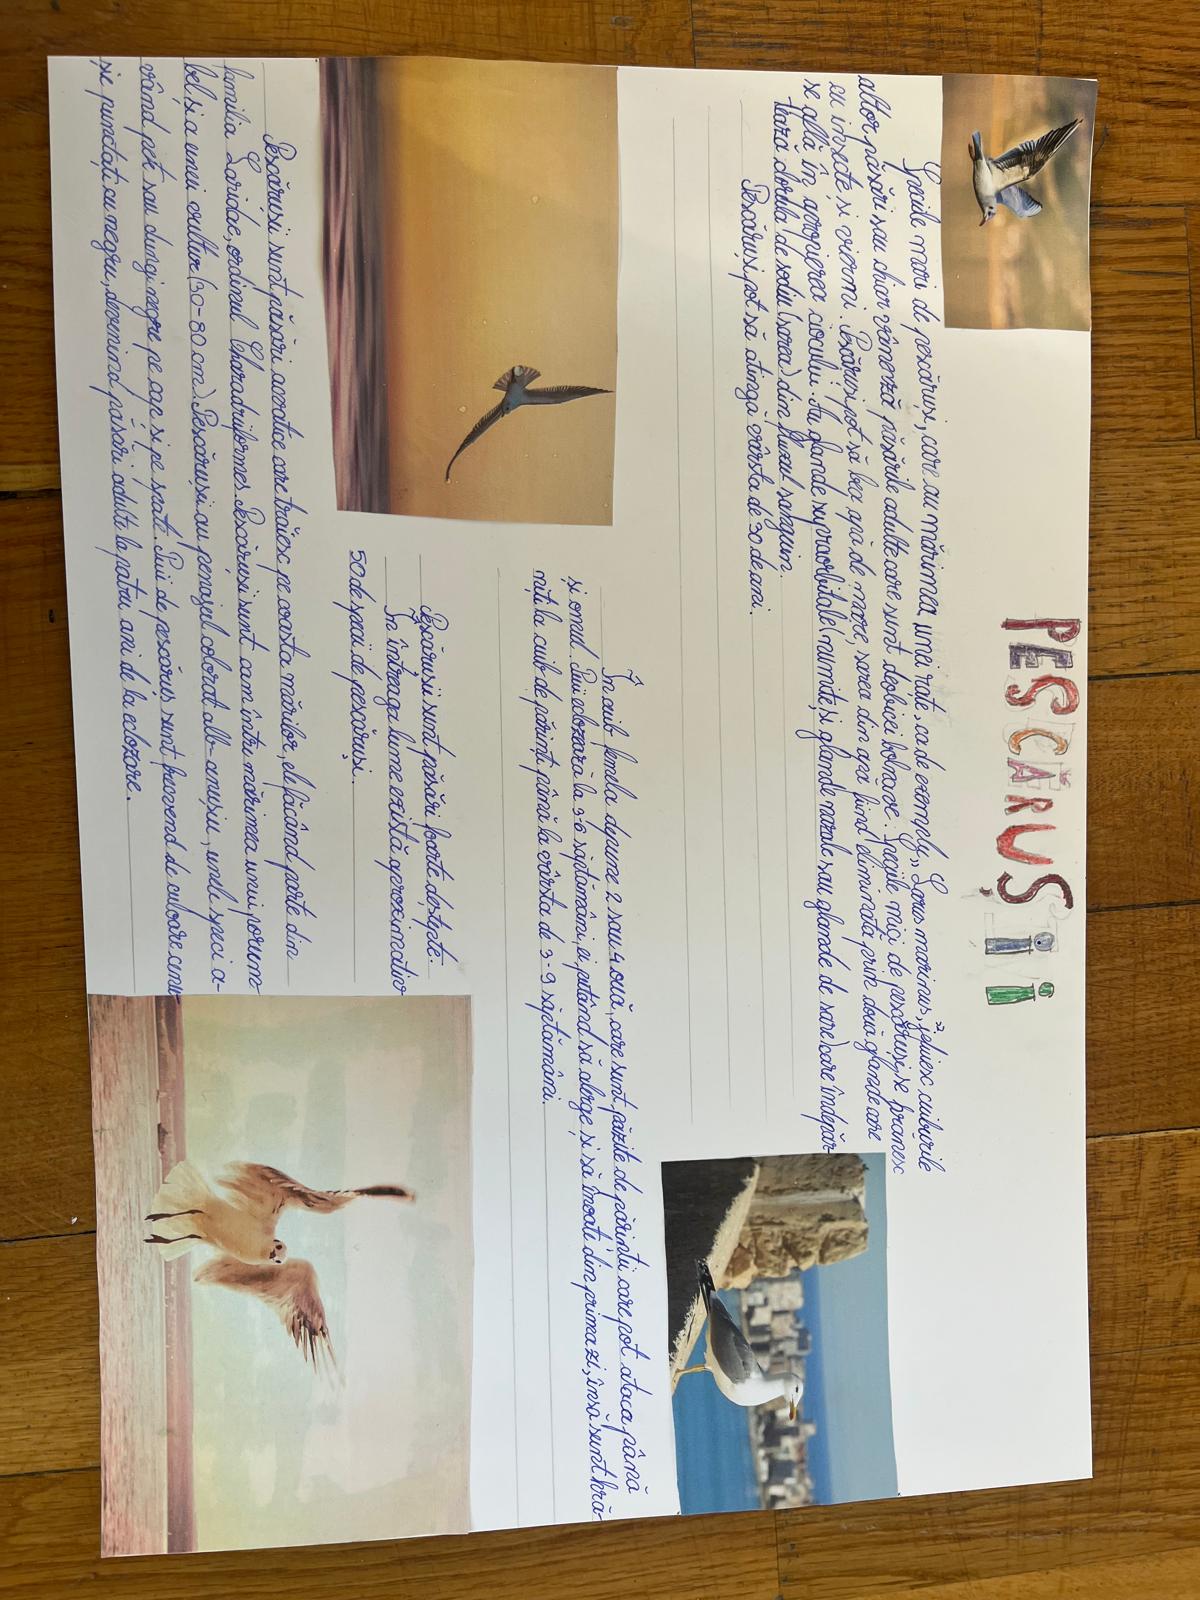 PESCĂRUȘII
Speciile mari de pescăruși, care au mărimea unei rațe, ca de exemplu „Larus marinus", jefuiesc cuiburile
altor păsări sau chiar vâmează păsările adulte care sunt deobicei bolnave. Speciile mici de pescăruși, se hrănesc
cu insecte și viermi. Pescăruși pot să bea apă de mare, sarea din apă fiind eliminată prin două glande care
se află în apropierea ciocului. Au glande supraorbitale (numite și glande nazale sau glande de sare) care îndepăr-
tează clorula de sodiu (sarea) din fluxul sanguin.
Pescăruși pot să atingă vârsta de 30 de ani.
În cuib femela depune 2 sau 4 ouă, care sunt păzite de părinții care pot ataca până
și omul. Puii eclozează la 3-6 săptămâni, ei putând să alerge și să înoate din prima zi, însă sunt hră-
niți la cuib de părinți până la vârsta de 3-9 săptămâni.
Pescăruși sunt păsări foarte deștepte.
În întreaga lume există aproximativ
50 de specii de pescăruși.
Pescăruși sunt păsări acvatice care trăiesc pe coasta mărilor, ele făcând parte din
familia Laridae, ordinul Charadriiformes. Pescărusii sunt cam între mărimea unui porum-
bel și a unui vultur (30-80 cm). Pescărușii au penajul colorat alb-cenușiu, unele specii a-
vând pete sau dungi negre pe cap și pe spate. Puii de pescăruș sunt fiecvend de culoare cenu-
șie punctați cu negru, devenind păsări adulte la patru ani de la eclozare.